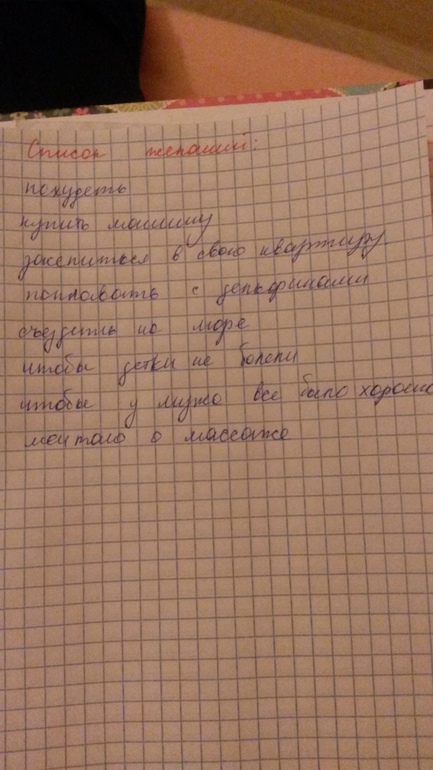 Список желаний:
похудеть
купить машину
заселиться в свою квартиру
поплавать с дельфинами
съездить на море
чтобы детки не болели
чтобы у мужа все было хорошо
мечтаю о массаже